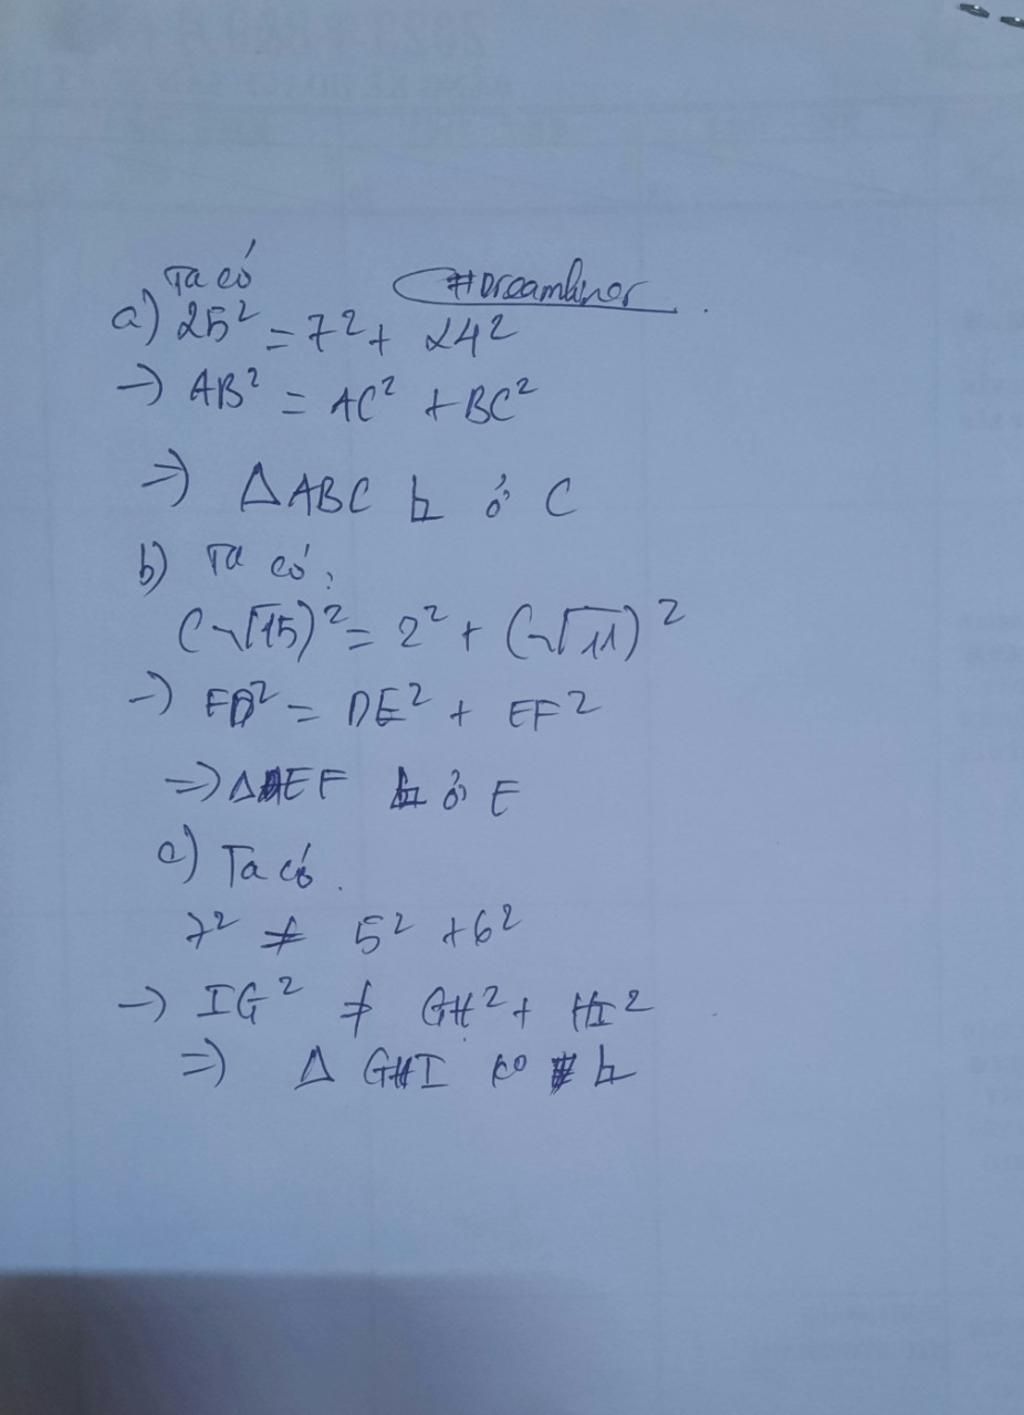 Ta có
#Dreamliner
a) 25² = 7² + 24²
→ AB² = AC² + BC²
⇒ ΔABC ⊥ ở C
b) Ta có:
(√15)² = 2² + (√11)²
→ FD² = DE² + EF²
⇒ ΔDEF ⊥ ở E
c) Ta có.
7² ≠ 5² + 6²
→ IG² ≠ GH² + HI²
⇒ Δ GHI ko ⊥